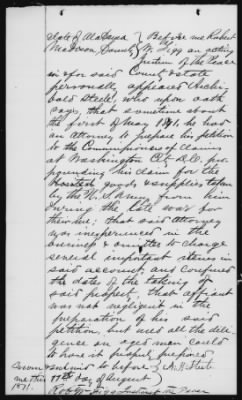 State of Alabama } Before me Robert
Madison County } W. Figg an acting
Justice of the Peace
in & for said County & state
personally appeared Archi
bald Steele, who upon oath
says, that sometime about
the first of May 1871, he had
an Attorney to prepare his petition
to the Commissioners of claims
at Washington City D.C. pro
pounding his claim for the
goods & supplies taken
by the U.S. Army from him
during the late war
that said Attorney
was inexperienced in the
business & omitted to charge
several important items in
said account and confused
the dates of the taking of
said property, that affiant
was not negligent in the
preparation of his said
petition, but used all the dili
gence an aged man could
to have it properly prepared
Sworn and sub to before } A. Steele
me this 19th day of August }
1871. Robt W Figg Justice of the Peace